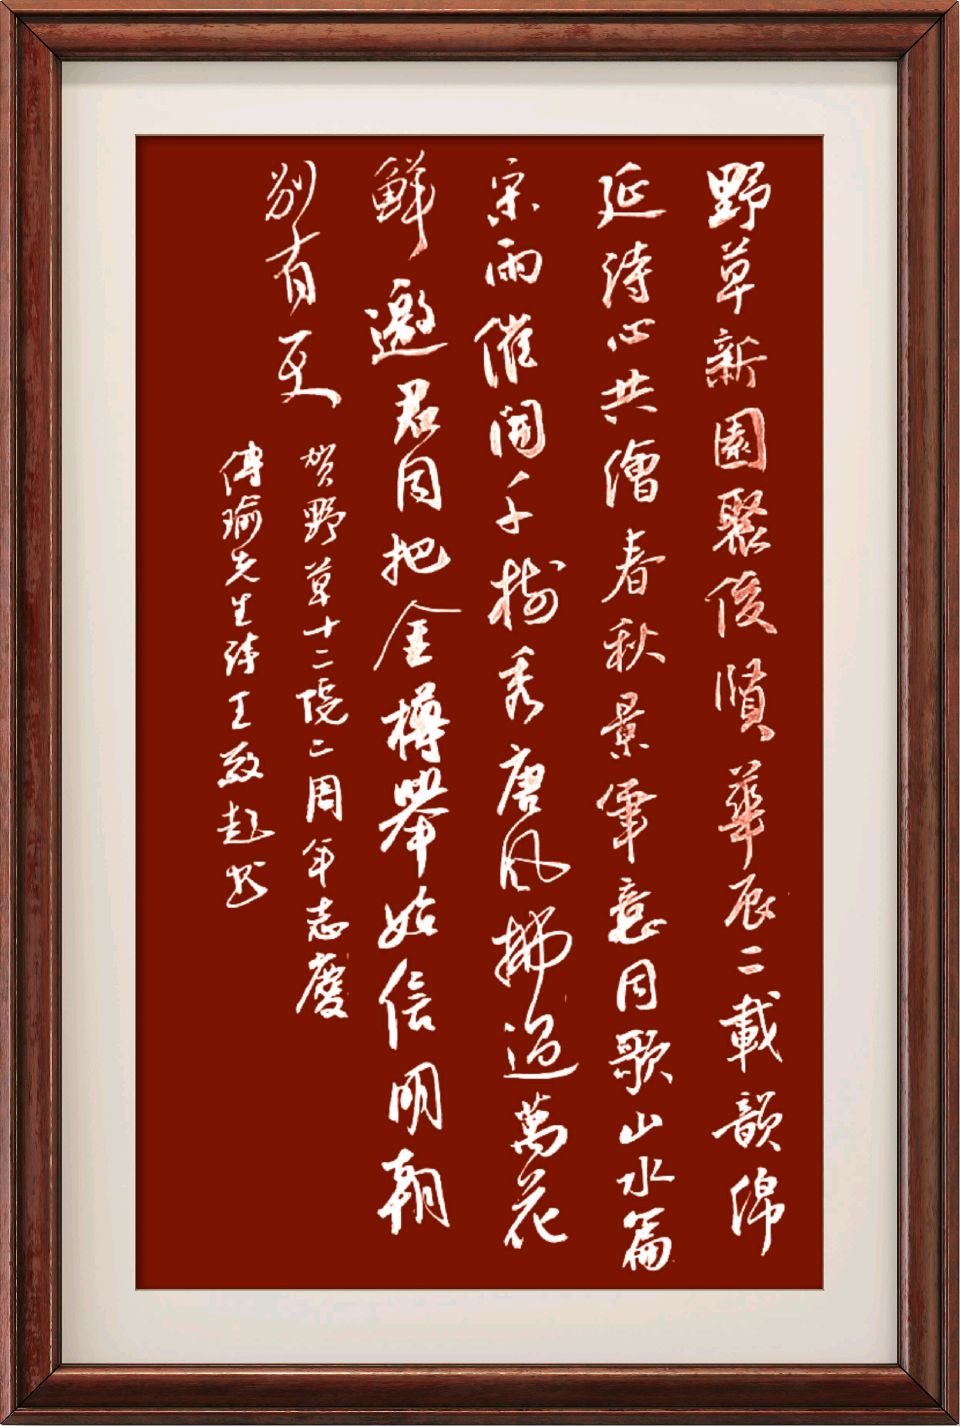 野草新園聚俊賢華辰二載韻綿
延詩心共繪春秋景筆意同歌山水篇
宋雨催開千樹秀唐風拂過萬花
鮮邀君同把金樽舉始信明朝
别有天
贺野草十二院二周年志慶
傅瑜先生詩王书